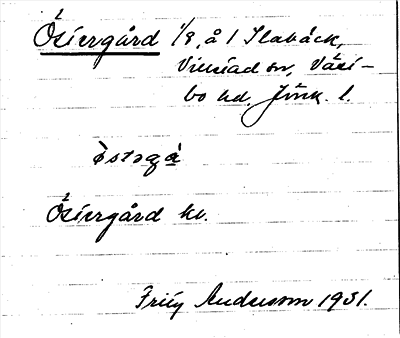 Östergård 1/8, å 1 Slabäck,
Villstad sn, Väst-
bo hd, Jönk. l.
östəgɑ̀
Östergård kl.
Frity Andersson 1931.